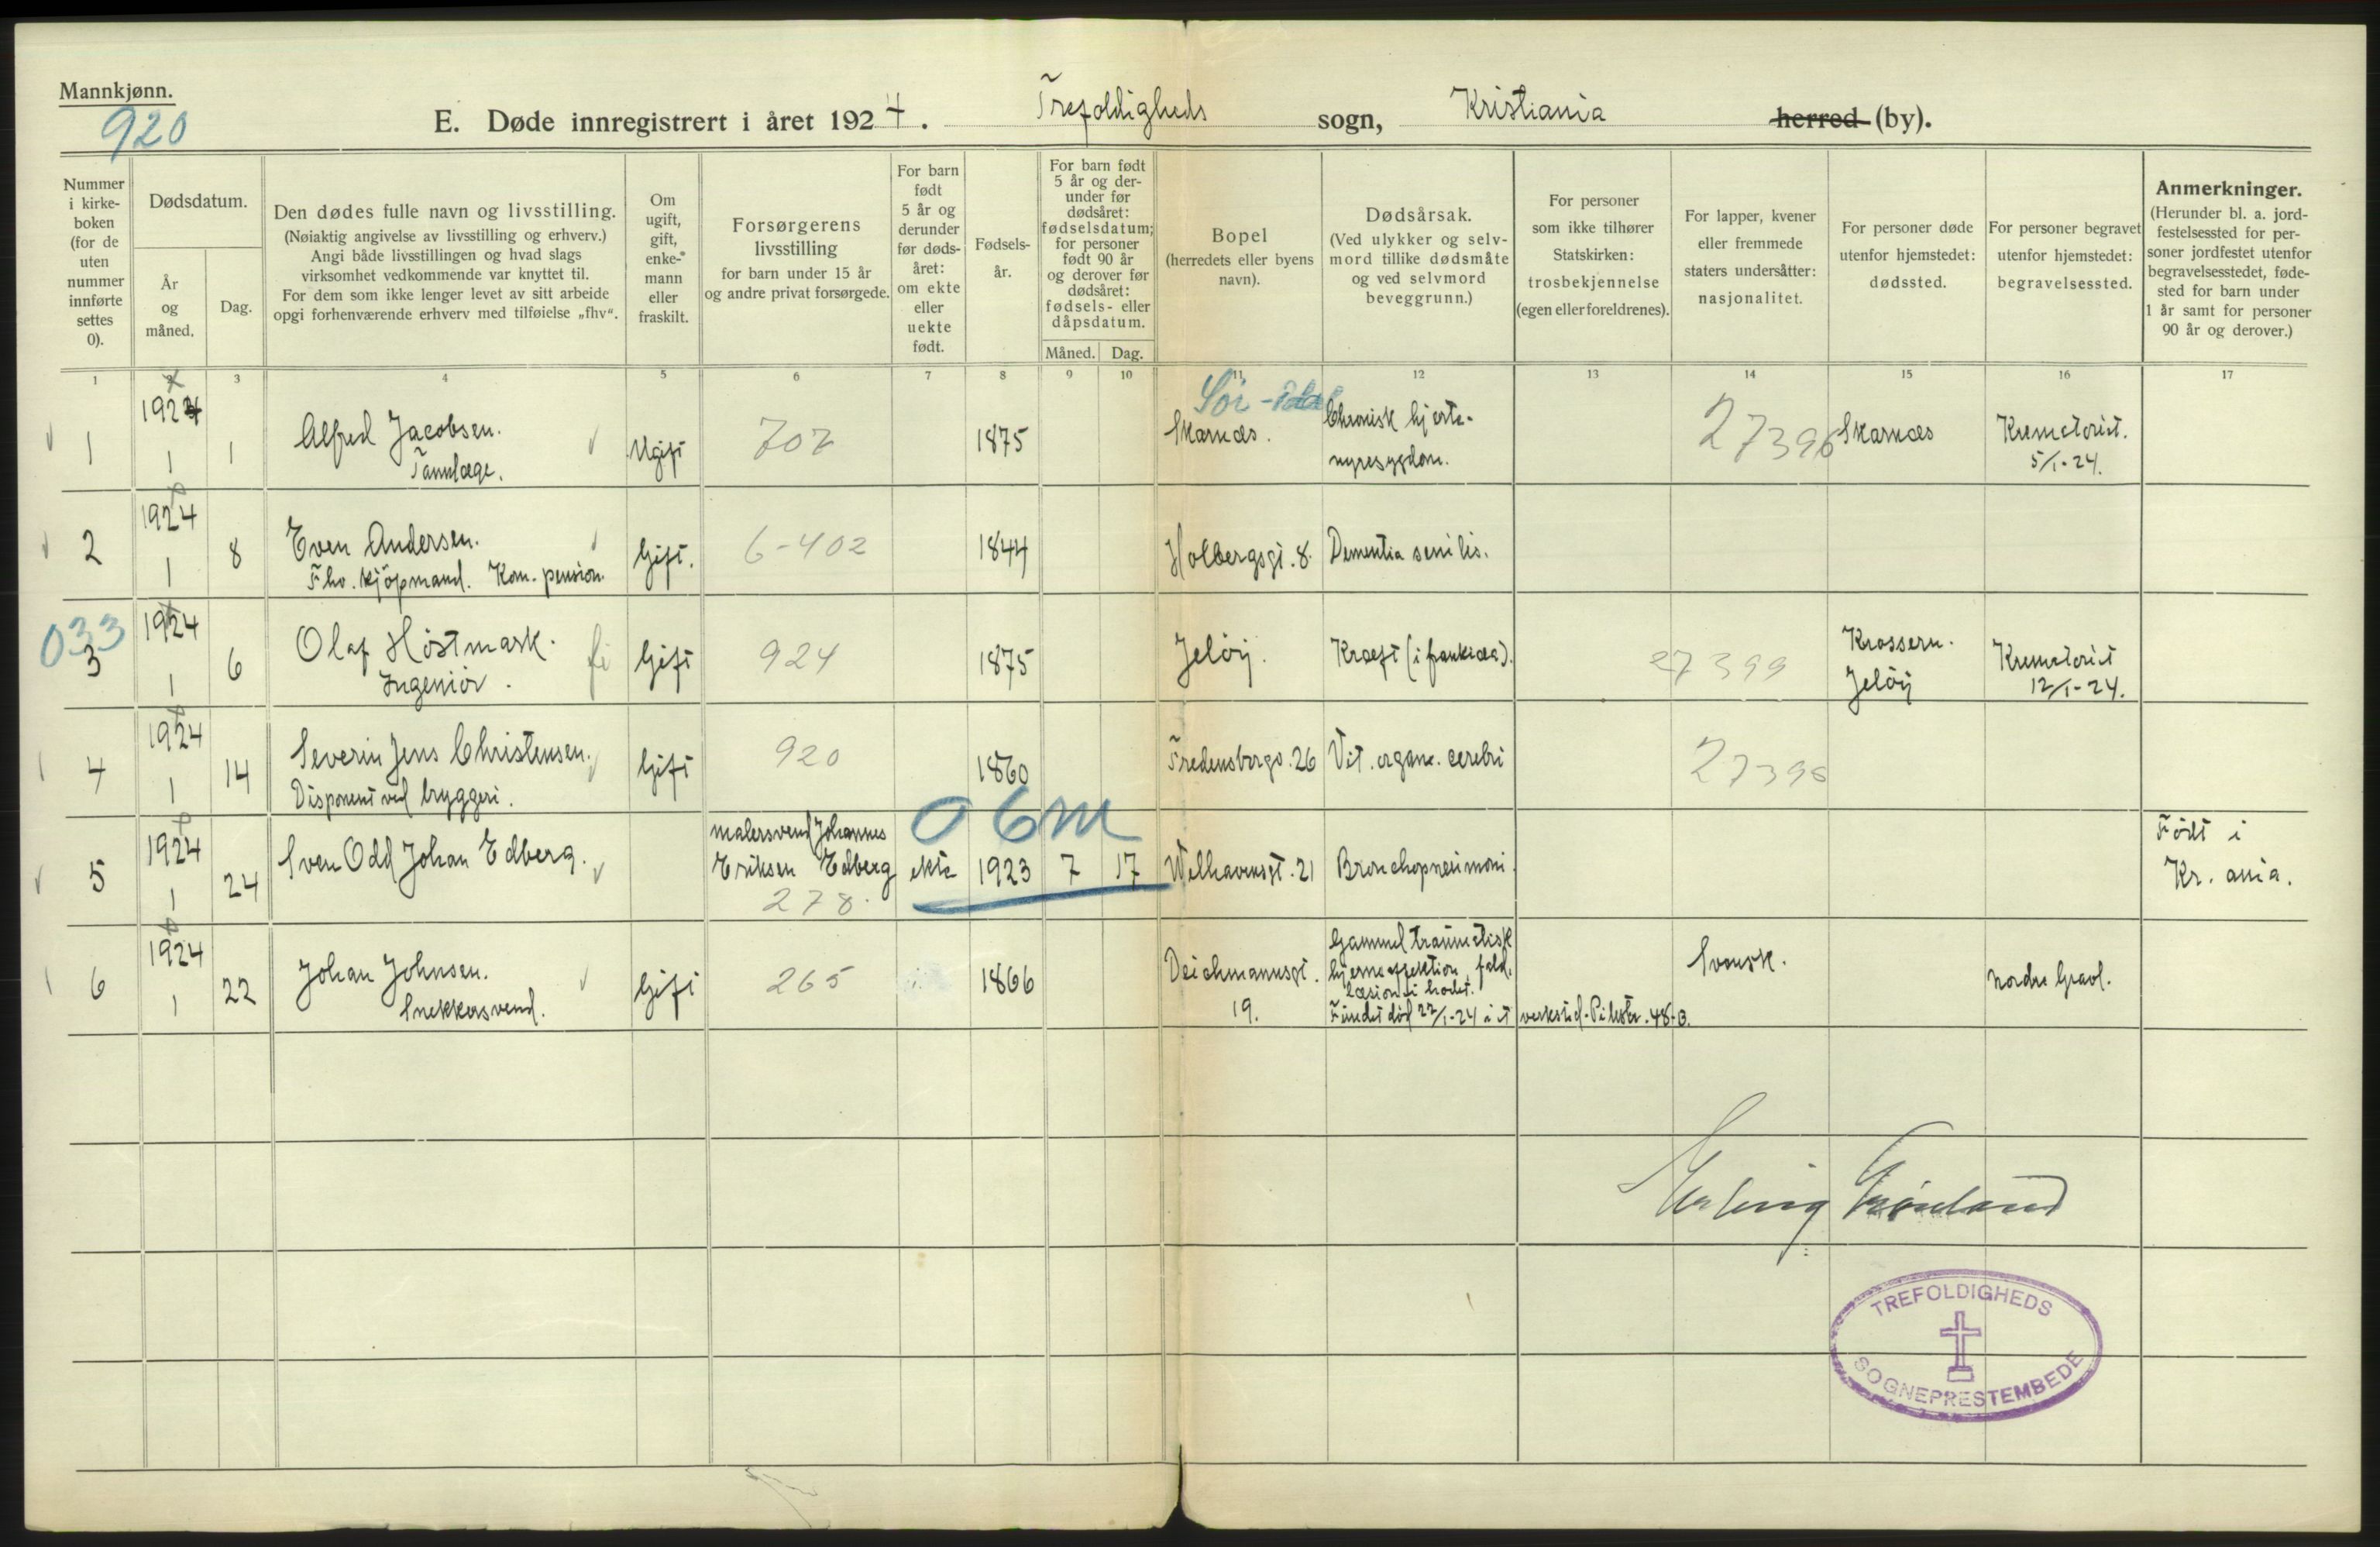 Mannkjønn.
920
E. Døde innregistrert i året 1924. Trefoldigheds sogn, Kristiania herred (by).
Nummer i kirke- boken (for de uten nummer innførte settes 0).
Dødsdatum.
År og måned.
Dag.
Den dødes fulle navn og livsstilling.
(Nøiaktig angivelse av livsstilling og erhverv.)
Angi både livsstillingen og hvad slags
virksomhet vedkommende var knyttet til.
For dem som ikke lenger levet av sitt arbeide
opgi forhenværende erhverv med tilføielse „fhv“.
Om ugift, gift, enke- mann eller fraskilt.
Forsørgerens
livsstilling
for barn under 15 år
og andre privat forsørgede.
For barn født 5 år og derunder før døds- året: om ekte eller uekte født.
Fødsels- år.
For barn født 5 år og der- under før dødsåret: fødselsdatum; for personer født 90 år og derover før dødsåret: fødsels- eller dåpsdatum.
Måned. Dag.
Bopel
(herredets eller byens
navn).
Dødsårsak.
(Ved ulykker og selv-
mord tillike dødsmåte
og ved selvmord
beveggrunn.)
For personer
som ikke tilhører
Statskirken:
trosbekjennelse
(egen eller foreldrenes).
For lapper, kvener
eller fremmede
staters undersåtter:
nasjonalitet.
For personer døde
utenfor hjemstedet:
dødssted.
For personer begravet
utenfor hjemstedet:
begravelsessted.
Anmerkninger.
(Herunder bl. a. jord-
festelsessted for per-
soner jordfestet utenfor
begravelsesstedet, føde-
sted for barn under
1 år samt for personer
90 år og derover.)
1 2 3 4 5 6 7 8 9 10 11 12 13 14 15 16 17
1 1924 1 1 Alfred Jacobsen.
Tannlæge.
Ugift 702 1875 Sør-
Skarnæs. Chronisk hjerte-
nyresygdom.
27396 Skarnæs Krematoriet.
5/1-24.
2 1924 1 8 Even Andersen.
Fhv. kjöpmand. Kom. pension.
Gift. 6-402 1844 Holbergsgt. 8. Dementia senilis.
033
3 1924 1 6 Olaf Höstmark.
Ingeniör.
fi Gift 924 1875 Jelöy. Kræft
27399 Jelöy
Krematoriet
12/1-24.
4 1924 1 14 Severin Jens Christensen.
Disponent ved bryggeri.
Gift 920 1860 Fredensborgv. 26 Vit. organ. cerebri
27396
06m
5 1924 1 24 Sven Odd Johan Edberg.
malersvend Johannes
Eriksen Edberg
278.
ekte 1923 7 17 Welhavensgt. 21 Bronchopneumoni.
Født i
Kr. ania.
6 1924 1 22 Johan Johnsen.
Snekkersvend.
Gift 265 1866 Deichmannsgt.
19.
Gammel traumatisk
hjerneaffektion, fald,
læsion i hodet.
Fundet död 22/1-24 i et verksted. Pilestr. 48-B.
Svensk.
Nordre Gravl.
Erling Grönland
TREFOLDIGHEDS
SOGNEPRESTEMBEDE